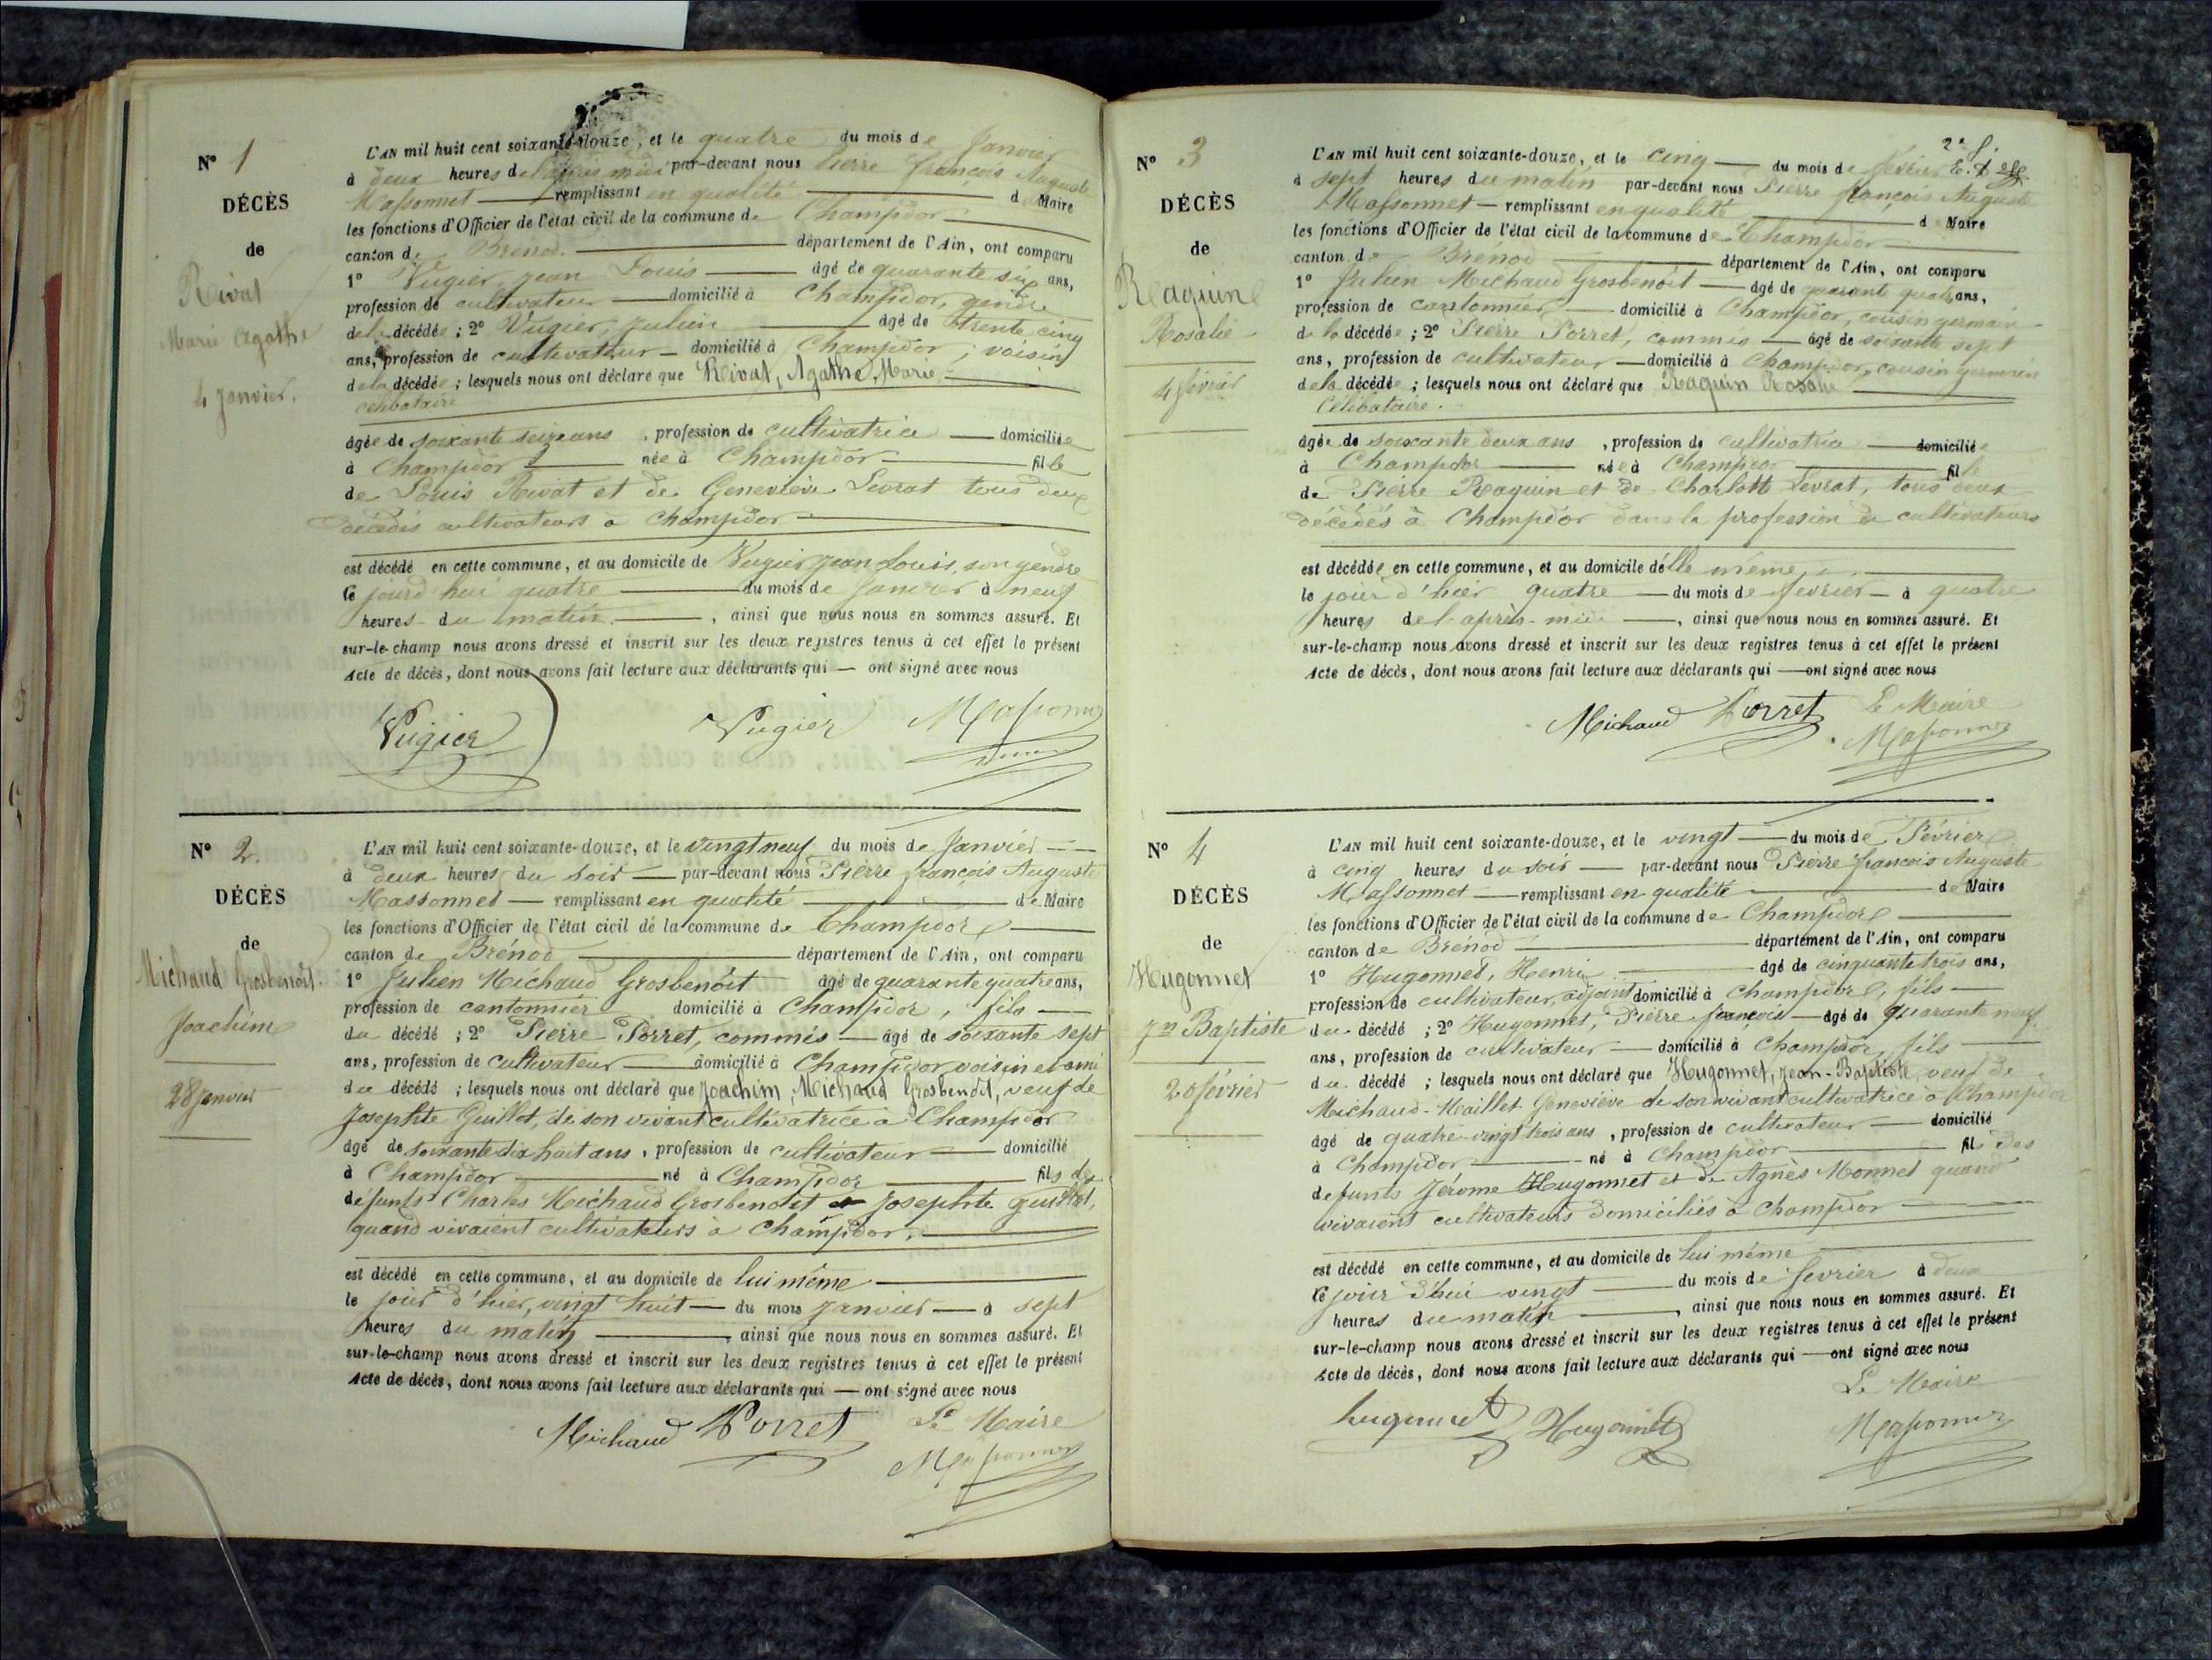 N° 1
DÉCÈS
de
Rivat
Marie Agathe
4 Janvier.
L'AN mil huit cent soixante-douze, et le quatre du mois de Janvier
à deux heures de l'après midi par-devant nous Pierre françois Auguste
Massonnet — remplissant en qualité — d Maire
les fonctions d'Officier de l'état civil de la commune de Champdor
canton de Brénod — département de l'Ain, ont comparu
1° Vugier, Jean Louis — âgé de quarante six ans,
profession de cultivateur — domicilié à Champdor, gendre
de la décédée ; 2° Vugier, Julien — âgé de trente cinq
ans, profession de cultivateur — domicilié à Champdor ; voisin
de la décédée ; lesquels nous ont déclaré que Rivat, Agathe, Marie
célibataire
âgée de soixante seize ans, profession de cultivatrice — domiciliée
à Champdor — née à Champdor — fille
de Louis Rivat et de Geneviève Levrat tous deux
décédés cultivateurs à Champdor
est décédé en cette commune, et au domicile de Vugier Jean Louis, son gendre
le jourd'hui quatre — du mois de Janvier à neuf
heures du matin — , ainsi que nous nous en sommes assuré. Et
sur-le-champ nous avons dressé et inscrit sur les deux registres tenus à cet effet le présent
Acte de décès, dont nous avons fait lecture aux déclarants qui — ont signé avec nous
Vugier Vugier Massonnet
N° 2.
DÉCÈS
de
Michaud Grosbenoît.
Joachim
28 janvier
L'AN mil huit cent soixante-douze, et le vingt neuf du mois de Janvier —
à deux heures du soir — par-devant nous Pierre françois Auguste
Massonnet — remplissant en qualité — de Maire
les fonctions d'Officier de l'état civil de la commune de Champdor —
canton de Brénod — département de l'Ain, ont comparu
1° Julien Michaud Grosbenoît âgé de quarante quatre ans,
profession de cantonnier domicilié à Champdor, fils —
du décédé ; 2° Pierre Porret, commis — âgé de soixante sept
ans, profession de cultivateur — domicilié à Champdor, voisin et ami
du décédé ; lesquels nous ont déclaré que Joachim, Michaud Grosbenoît, veuf de
Josephte Guillot, de son vivant cultivatrice à Champdor
âgé de soixante dix huit ans, profession de cultivateur — domicilié
à Champdor — né à Champdor — fils des
defunts Charles Michaud Grosbenoît et Josephte Guillot,
quand vivaient cultivateurs à Champdor. —
est décédé en cette commune, et au domicile de lui même —
le jour d'hier, vingt huit — du mois janvier — à sept
heures du matin — , ainsi que nous nous en sommes assuré. Et
sur-le-champ nous avons dressé et inscrit sur les deux registres tenus à cet effet le présent
Acte de décès, dont nous avons fait lecture aux déclarants qui — ont signé avec nous
Michaud Porret Le Maire
Massonnet
N° 3
DÉCÈS
de
Raquin
Rosalie
4 février
2e f.
L'AN mil huit cent soixante-douze, et le cinq — du mois de février
à sept heures du matin par-devant nous Pierre françois Auguste
Massonnet — remplissant en qualité — d Maire
les fonctions d'Officier de l'état civil de la commune de Champdor —
canton de Brénod — département de l'Ain, ont comparu
1° Julien Michaud Grosbenoît — âgé de quarant quatre ans,
profession de cantonnier — domicilié à Champdor, cousin germain
de la décédée ; 2° Pierre Porret, commis — âgé de soixante sept
ans, profession de cultivateur — domicilié à Champdor, cousin germain
de la décédée ; lesquels nous ont déclaré que Raquin Rosalie —
Célibataire.
âgée de soixante deux ans, profession de cultivatrice — domiciliée
à Champdor — née à Champdor — fille
de Pierre Raquin et de Charlotte Levrat, tous deux
décédés à Champdor dans la profession de cultivateurs
est décédée en cette commune, et au domicile d'elle même —
le jour d'hier quatre — du mois de fevrier — à quatre
heures de l'après-midi — , ainsi que nous nous en sommes assuré. Et
sur-le-champ nous avons dressé et inscrit sur les deux registres tenus à cet effet le présent
Acte de décès, dont nous avons fait lecture aux déclarants qui — ont signé avec nous
Michaud Porret Le Maire
Massonnet
N° 4
DÉCÈS
de
Hugonnet
Jn Baptiste
20 février
L'AN mil huit cent soixante-douze, et le vingt — du mois de Février
à cinq heures du soir — par-devant nous Pierre françois Auguste
Massonnet — remplissant en qualité — de Maire
les fonctions d'Officier de l'état civil de la commune de Champdor —
canton de Brénod — département de l'Ain, ont comparu
1° Hugonnet, Henri — âgé de cinquante trois ans,
profession de cultivateur, adjoint domicilié à Champdor, fils —
du décédé ; 2° Hugonnet, Pierre françois — âgé de quarante neuf
ans, profession de cultivateur — domicilié à Champdor, fils —
du décédé ; lesquels nous ont déclaré que Hugonnet, Jean-Baptiste, veuf de
Michaud-Maillet Geneviève de son vivant cultivatrice à Champdor
âgé de quatre-vingt trois ans, profession de cultivateur — domicilié
à Champdor — né à Champdor — fils des
defunts Jérome Hugonnet et de Agnès Monnet quand
vivaient cultivateurs domiciliés à Champdor —
est décédé en cette commune, et au domicile de lui même —
le jour d'hui vingt — du mois de fevrier à deux
heures du matin — , ainsi que nous nous en sommes assuré. Et
sur-le-champ nous avons dressé et inscrit sur les deux registres tenus à cet effet le présent
Acte de décès, dont nous avons fait lecture aux déclarants qui — ont signé avec nous
hugonnet Hugonnet Le Maire
Massonnet